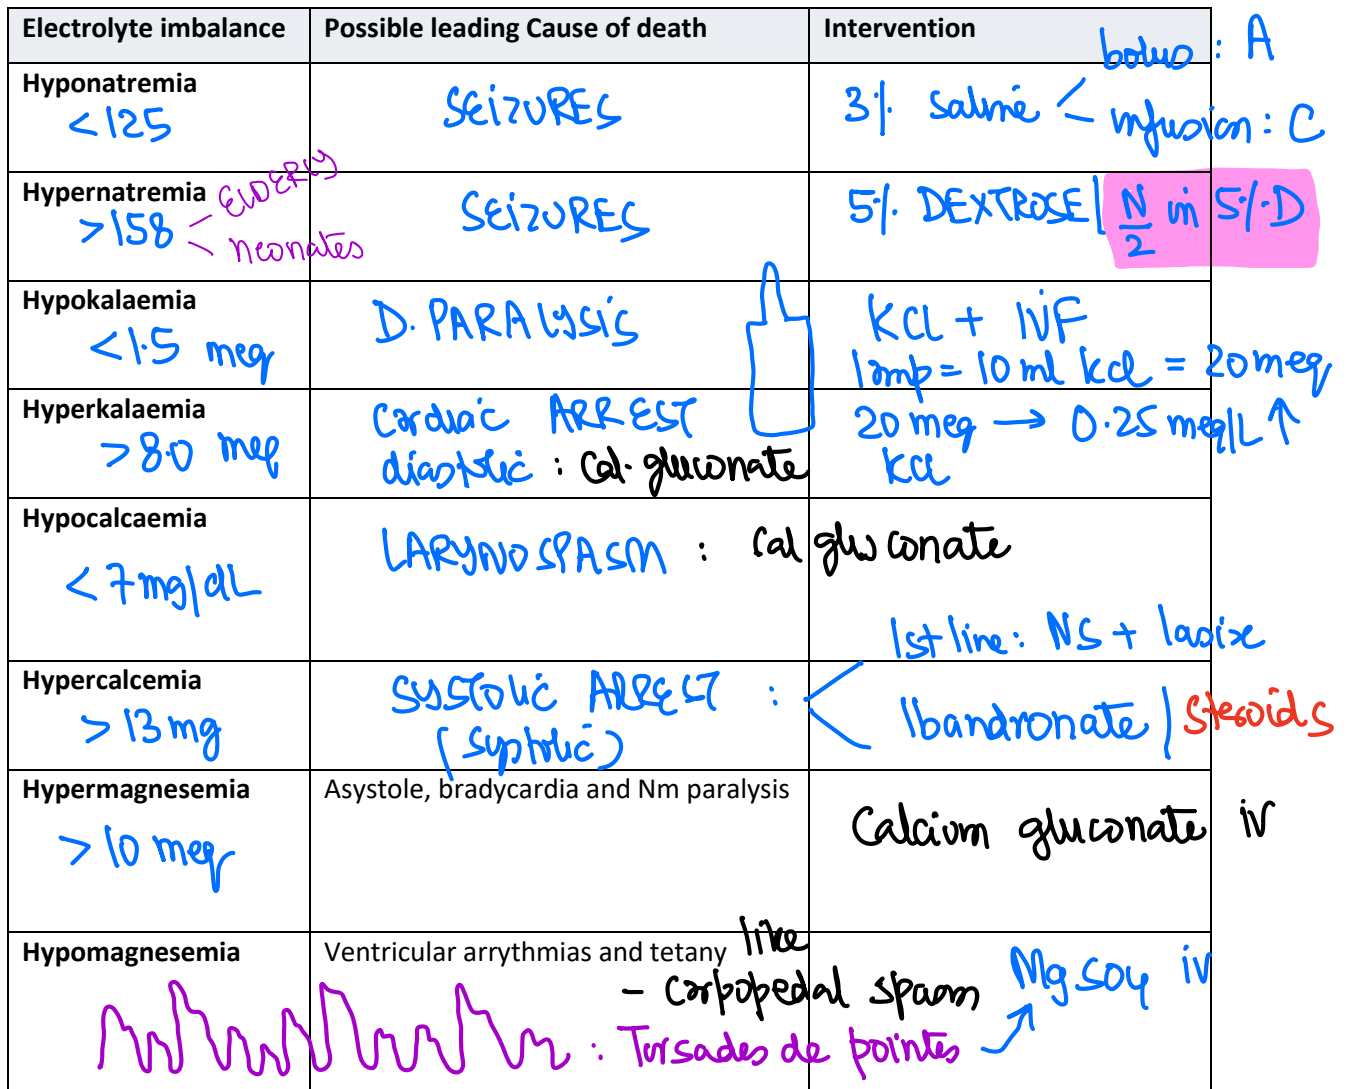 Electrolyte imbalance Possible leading Cause of death Intervention
Hyponatremia
<125
SEiZURES
3% saline < bolus : A
infusion : C
Hypernatremia
>158 - ELDERLY
- neonates
SEiZURES
5% DEXTROSE | N/2 in 5% D
Hypokalaemia
<1.5 meq
D. PARALYSiS
KCL + IVF
1amp = 10 ml kcl = 20 meq
Hyperkalaemia
>8.0 meq
Cardiac ARREST
diastolic : Cal. gluconate
20 meq → 0.25 meq/L ↑
KCl
Hypocalcaemia
<7mg/dL
LARYNOSPASM : Cal gluconate
Hypercalcemia
>13 mg
SYSTOLiC ARREST :
(systolic)
1st line: NS + lasix
Ibandronate | Steroids
Hypermagnesemia
>10 meq
Asystole, bradycardia and Nm paralysis
Calcium gluconate iv
Hypomagnesemia
Ventricular arrythmias and tetany like
- Carpopedal spasm
: Torsades de pointes →
MgSO4 iv